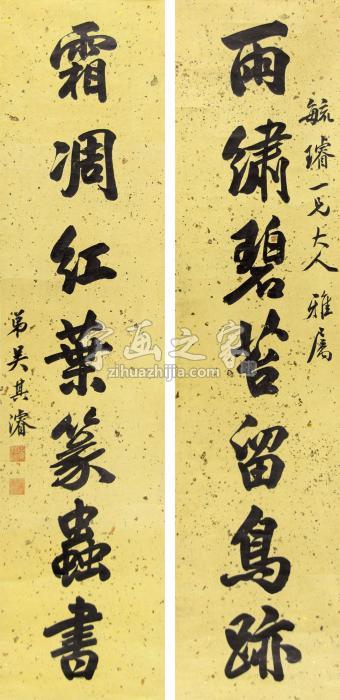 毓璿一兄大人雅属
雨繡碧苔留鳥跡
霜凋红葉篆蟲書
弟吴其濬
字画之家
zihuazhijia.com